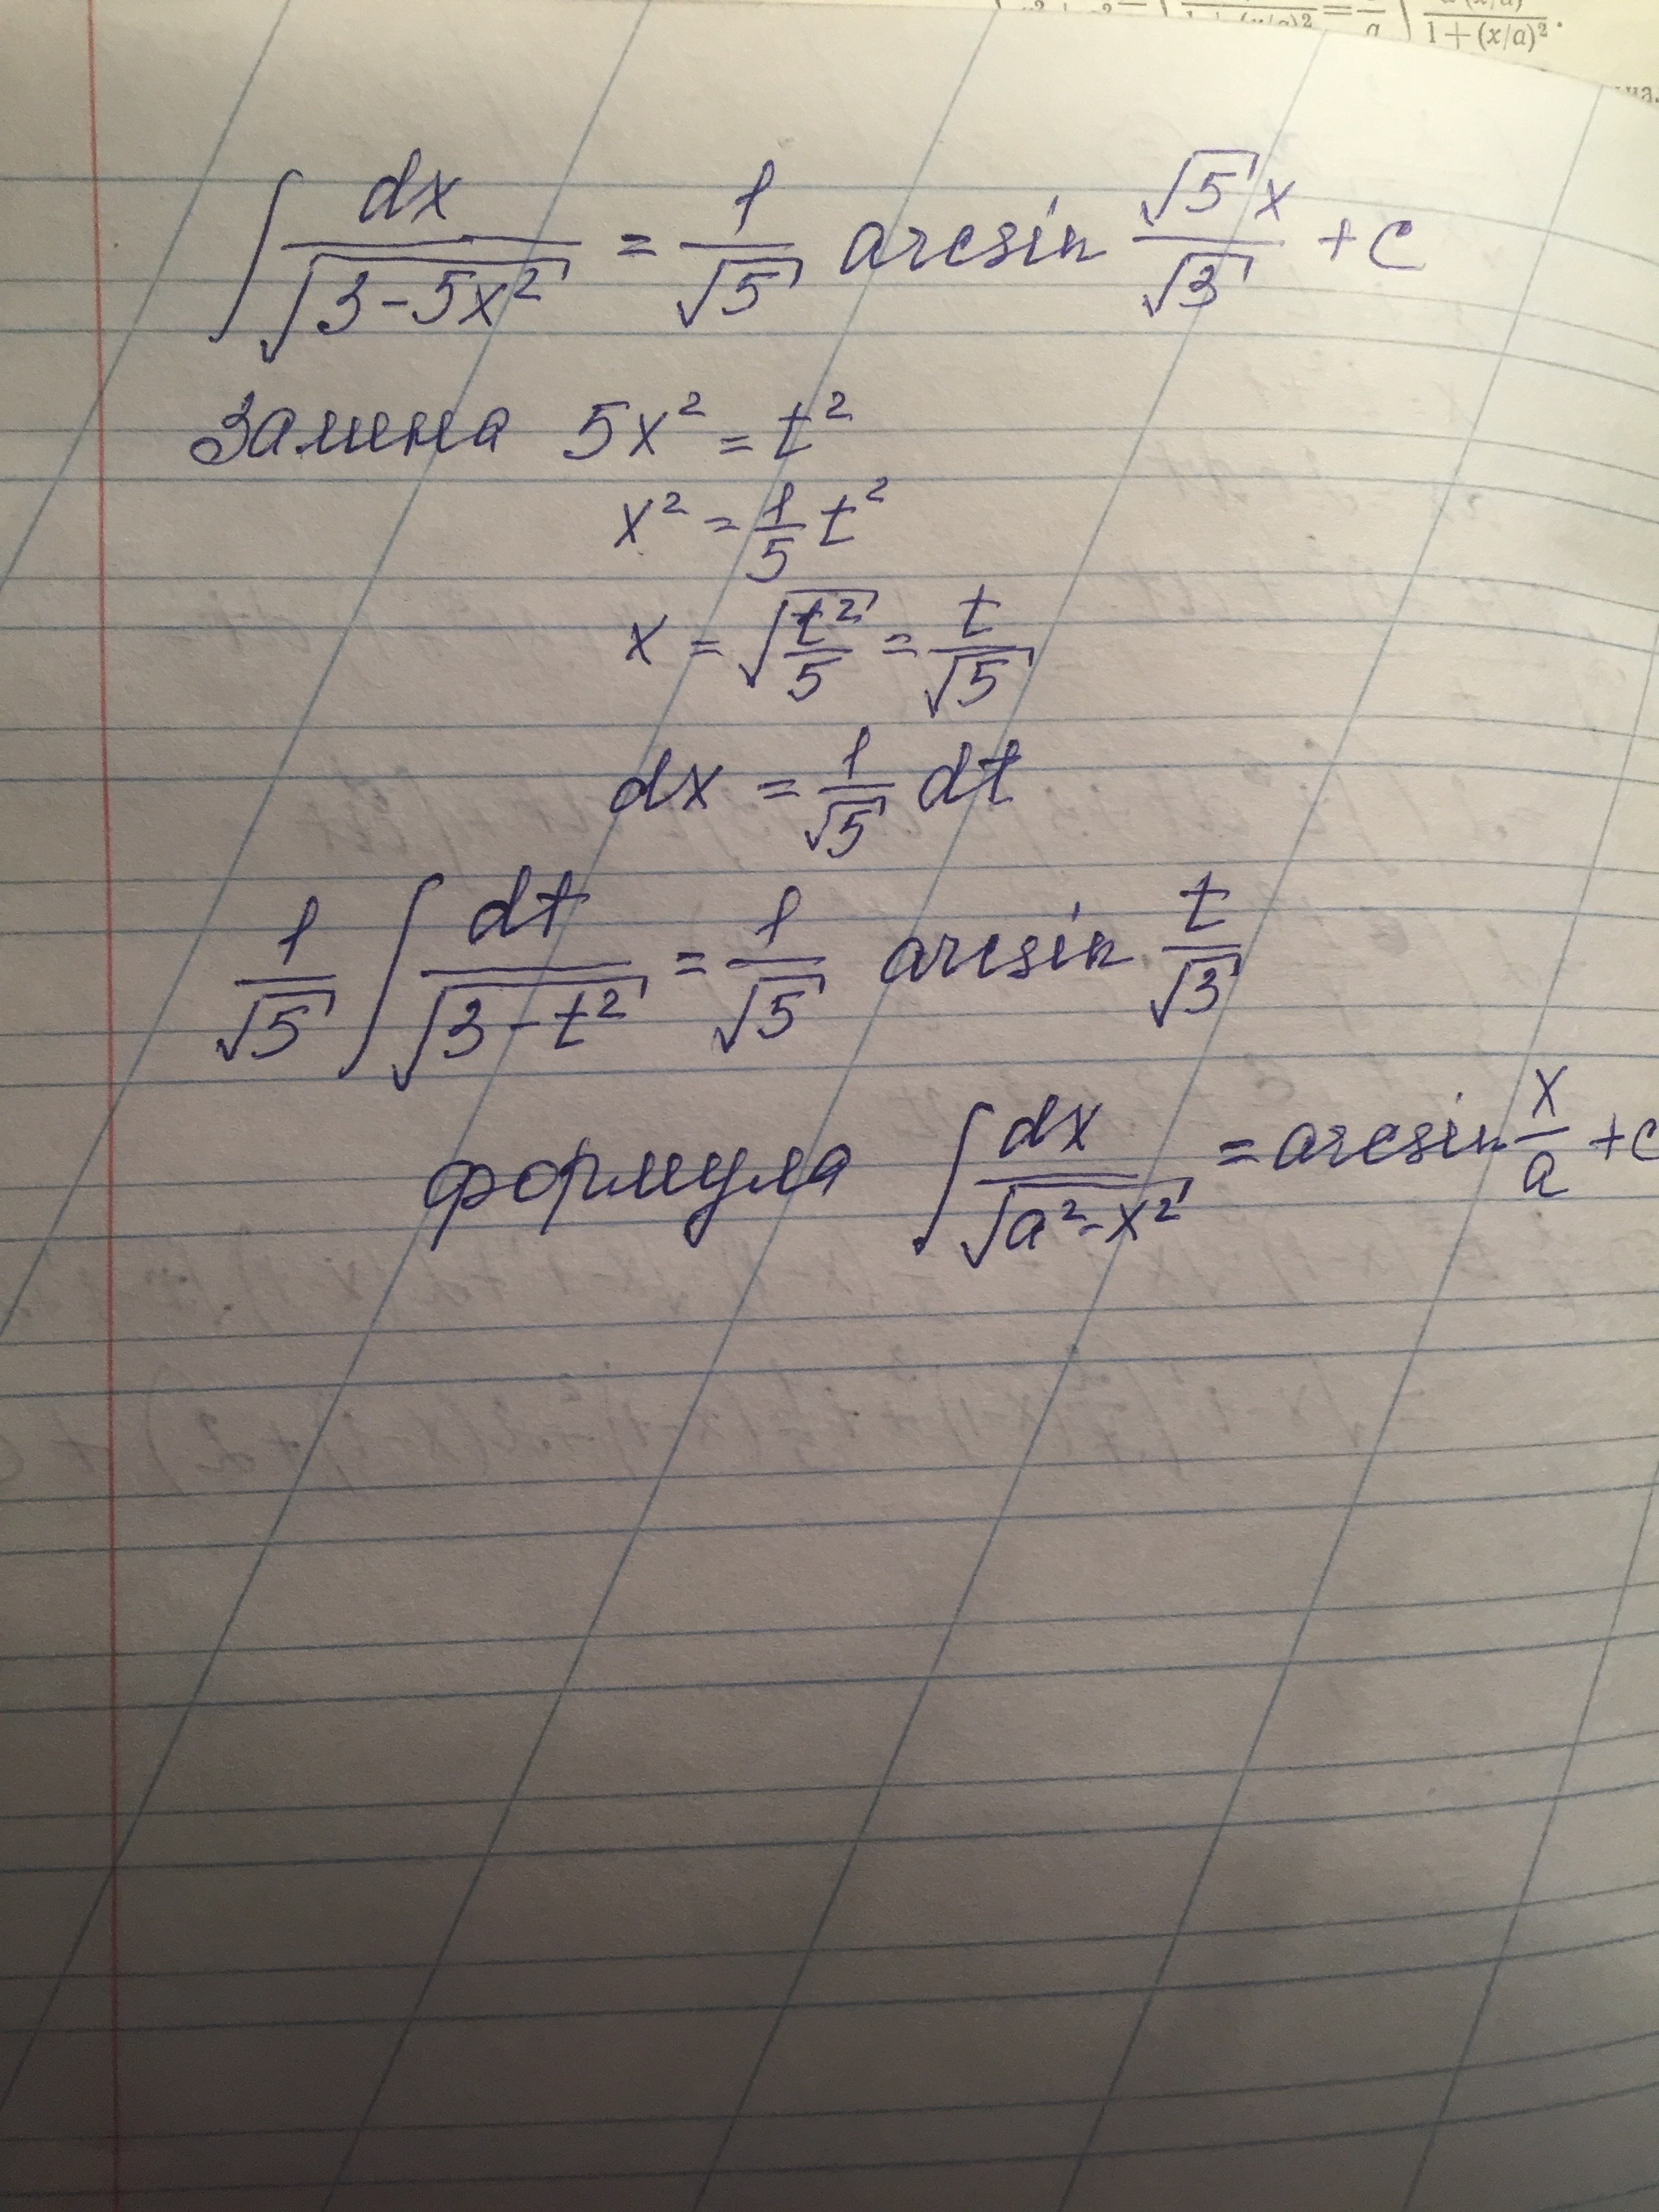 1+(x/a)²
∫ dx/√(3-5x²) = 1/√5 arcsin √5x/√3 + C
Замена 5x² = t²
x² = 1/5 t²
x = √(t²/5) = t/√5
dx = 1/√5 dt
1/√5 ∫ dt/√(3-t²) = 1/√5 arcsin t/√3
формула ∫ dx/√(a²-x²) = arcsin x/a + C